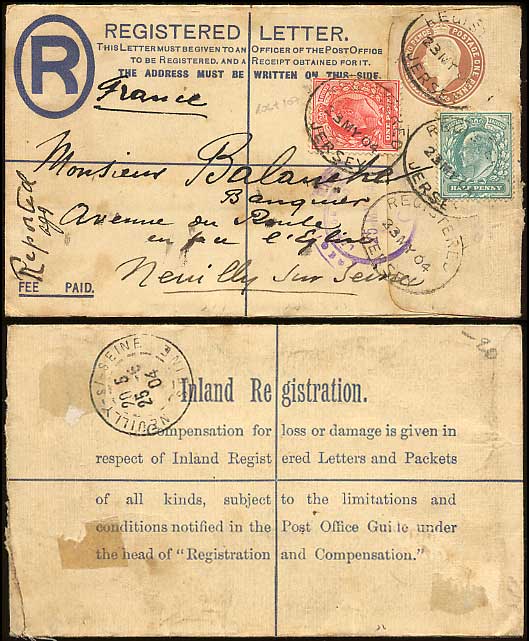 REGISTERED LETTER.
THIS LETTER MUST BE GIVEN TO AN OFFICER OF THE POST OFFICE
TO BE REGISTERED, AND A RECEIPT OBTAINED FOR IT.
THE ADDRESS MUST BE WRITTEN ON THIS SIDE.
R
France
REGISTERED
23 MY 04
JERSEY
POSTAGE
ONE PENNY
HALF PENNY
REGISTERED
23 MY 04
JERSEY
Monsieur
Banquier
Avenue du Roule
l'Eglise
Neuilly sur Seine
FEE PAID.
NEUILLY-S/-SEINE
25
04
Inland Registration.
Compensation for loss or damage is given in
respect of Inland Registered Letters and Packets
of all kinds, subject to the limitations and
conditions notified in the Post Office Guide under
the head of "Registration and Compensation."